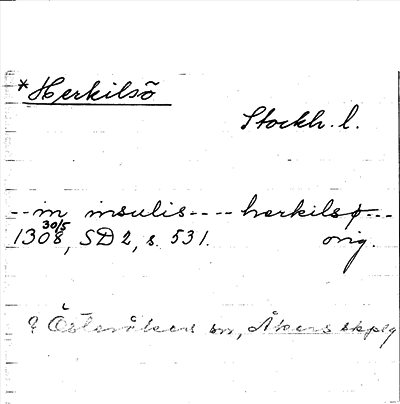 *Herkilsö
Stockh. l.
-- in insulis ---- herkilsø ---
1308 30/5, SD 2, s. 531. orig.
? Österåkers sn, Åkers skplg